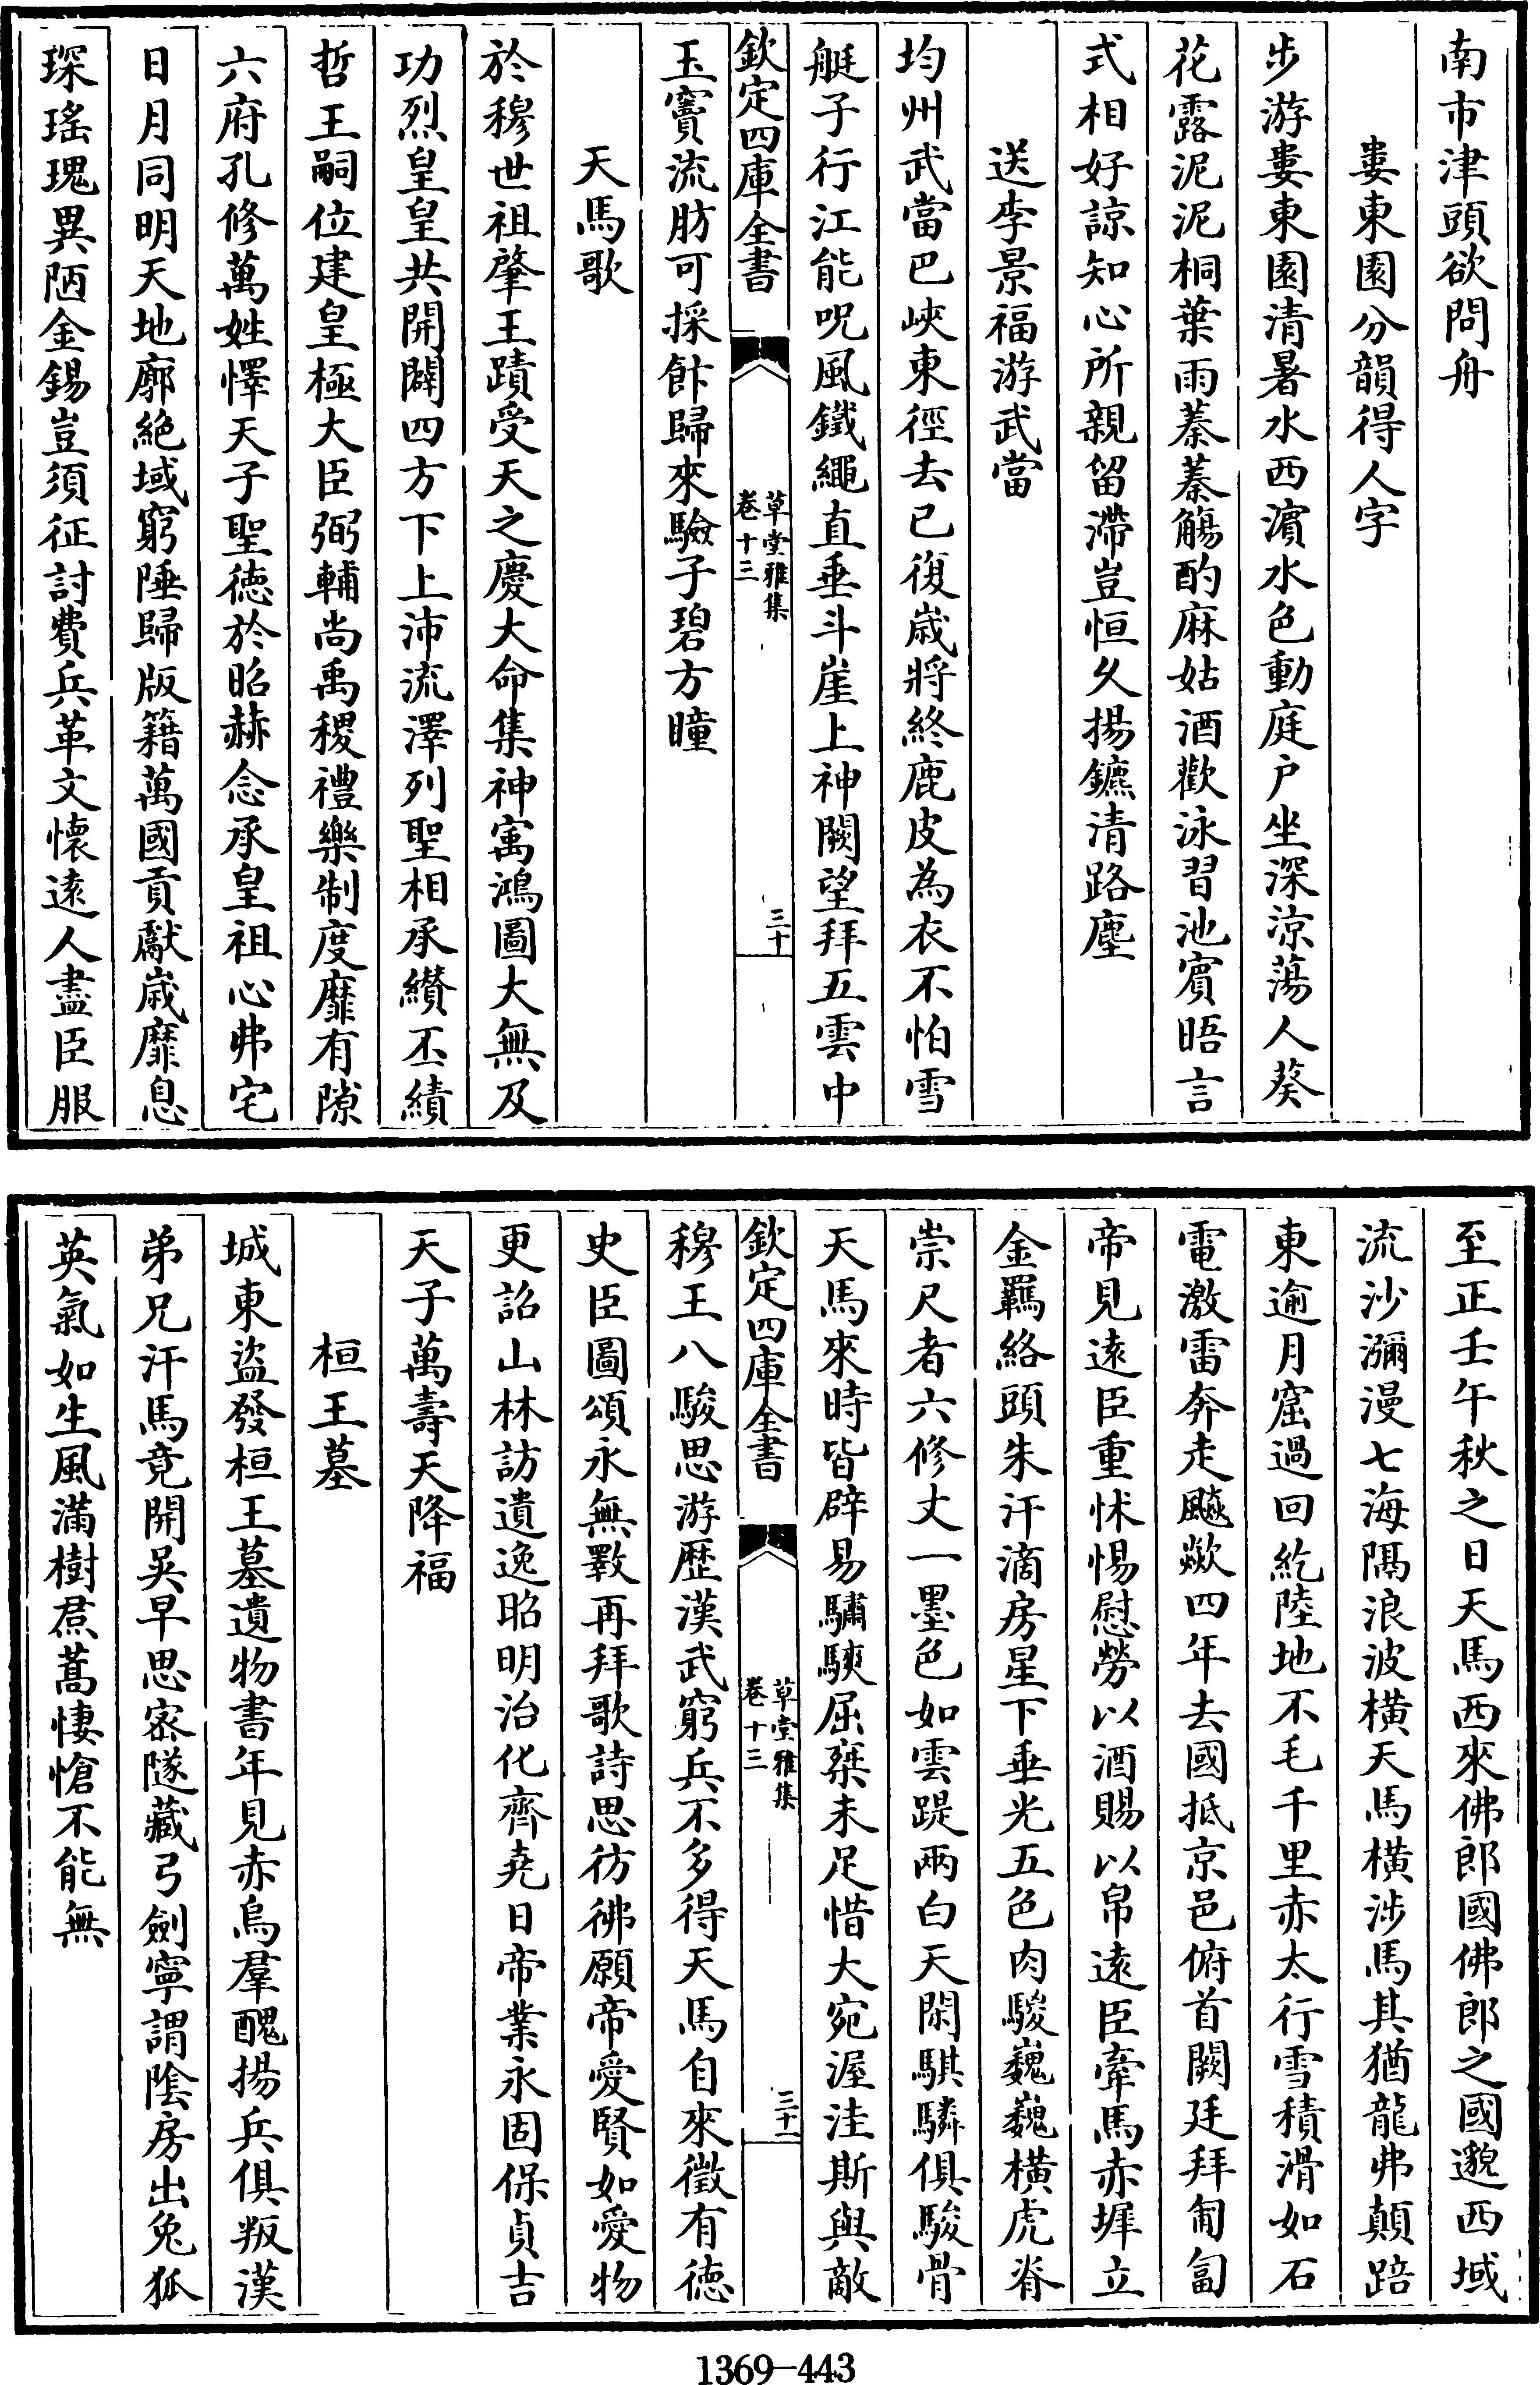 南市津頭欲問舟
婁東園分韻得人字
步游婁東園清暑水西濵水色動庭户坐深涼蕩人葵
花露泥泥桐葉雨蓁蓁觴酌麻姑酒歡泳習池賓晤言
式相好諒知心所親留滯豈恒久揚鑣清路塵
送李景福游武當
均州武當巴峽東徑去已復歳將終鹿皮為衣不怕雪
艇子行江能呪風鐵繩直垂斗崖上神闕望拜五雲中
欽定四庫全書
草堂雅集
卷十三
三十
玉竇流肪可採飰歸來驗子碧方瞳
天馬歌
於穆世祖肇王蹟受天之慶大命集神寓鴻圖大無及
功烈皇皇共開闢四方下上沛流澤列聖相承纘丕績
哲王嗣位建皇極大臣弼輔尚禹稷禮樂制度靡有隙
六府孔修萬姓懌天子聖德於昭赫念承皇祖心弗宅
日月同明天地廓絶域窮陲歸版籍萬國貢獻歳靡息
琛瑤瑰異陋金錫豈須征討費兵革文懷逺人盡臣服
至正壬午秋之日天馬西來佛郎國佛郎之國邈西域
流沙瀰漫七海隔浪波横天馬横涉馬其猶龍弗顛踣
東逾月窟過回紇陸地不毛千里赤太行雪積滑如石
電激雷奔走飈歘四年去國抵京邑俯首闕廷拜匍匐
帝見逺臣重怵惕慰勞以酒賜以帛逺臣牽馬赤墀立
金羈絡頭朱汗滴房星下垂光五色肉騣巍巍横虎脊
崇尺者六修丈一墨色如雲踶兩白天閑騏驎俱駿骨
天馬來時皆辟易驌騻屈椉未足惜大宛渥洼斯與敵
欽定四庫全書
草堂雅集
卷十三
三十一
穆王八駿思游歴漢武窮兵不多得天馬自來徵有德
史臣圖頌永無斁再拜歌詩思彷彿願帝愛賢如愛物
更詔山林訪遺逸昭明治化齊堯日帝業永固保貞吉
天子萬壽天降福
桓王墓
城東盜發桓王墓遺物書年見赤烏羣醜揚兵俱叛漢
弟兄汗馬竟開吴早思宻隧藏弓劍寧謂隂房出兔狐
英氣如生風滿樹焄蒿悽愴不能無
1369-443